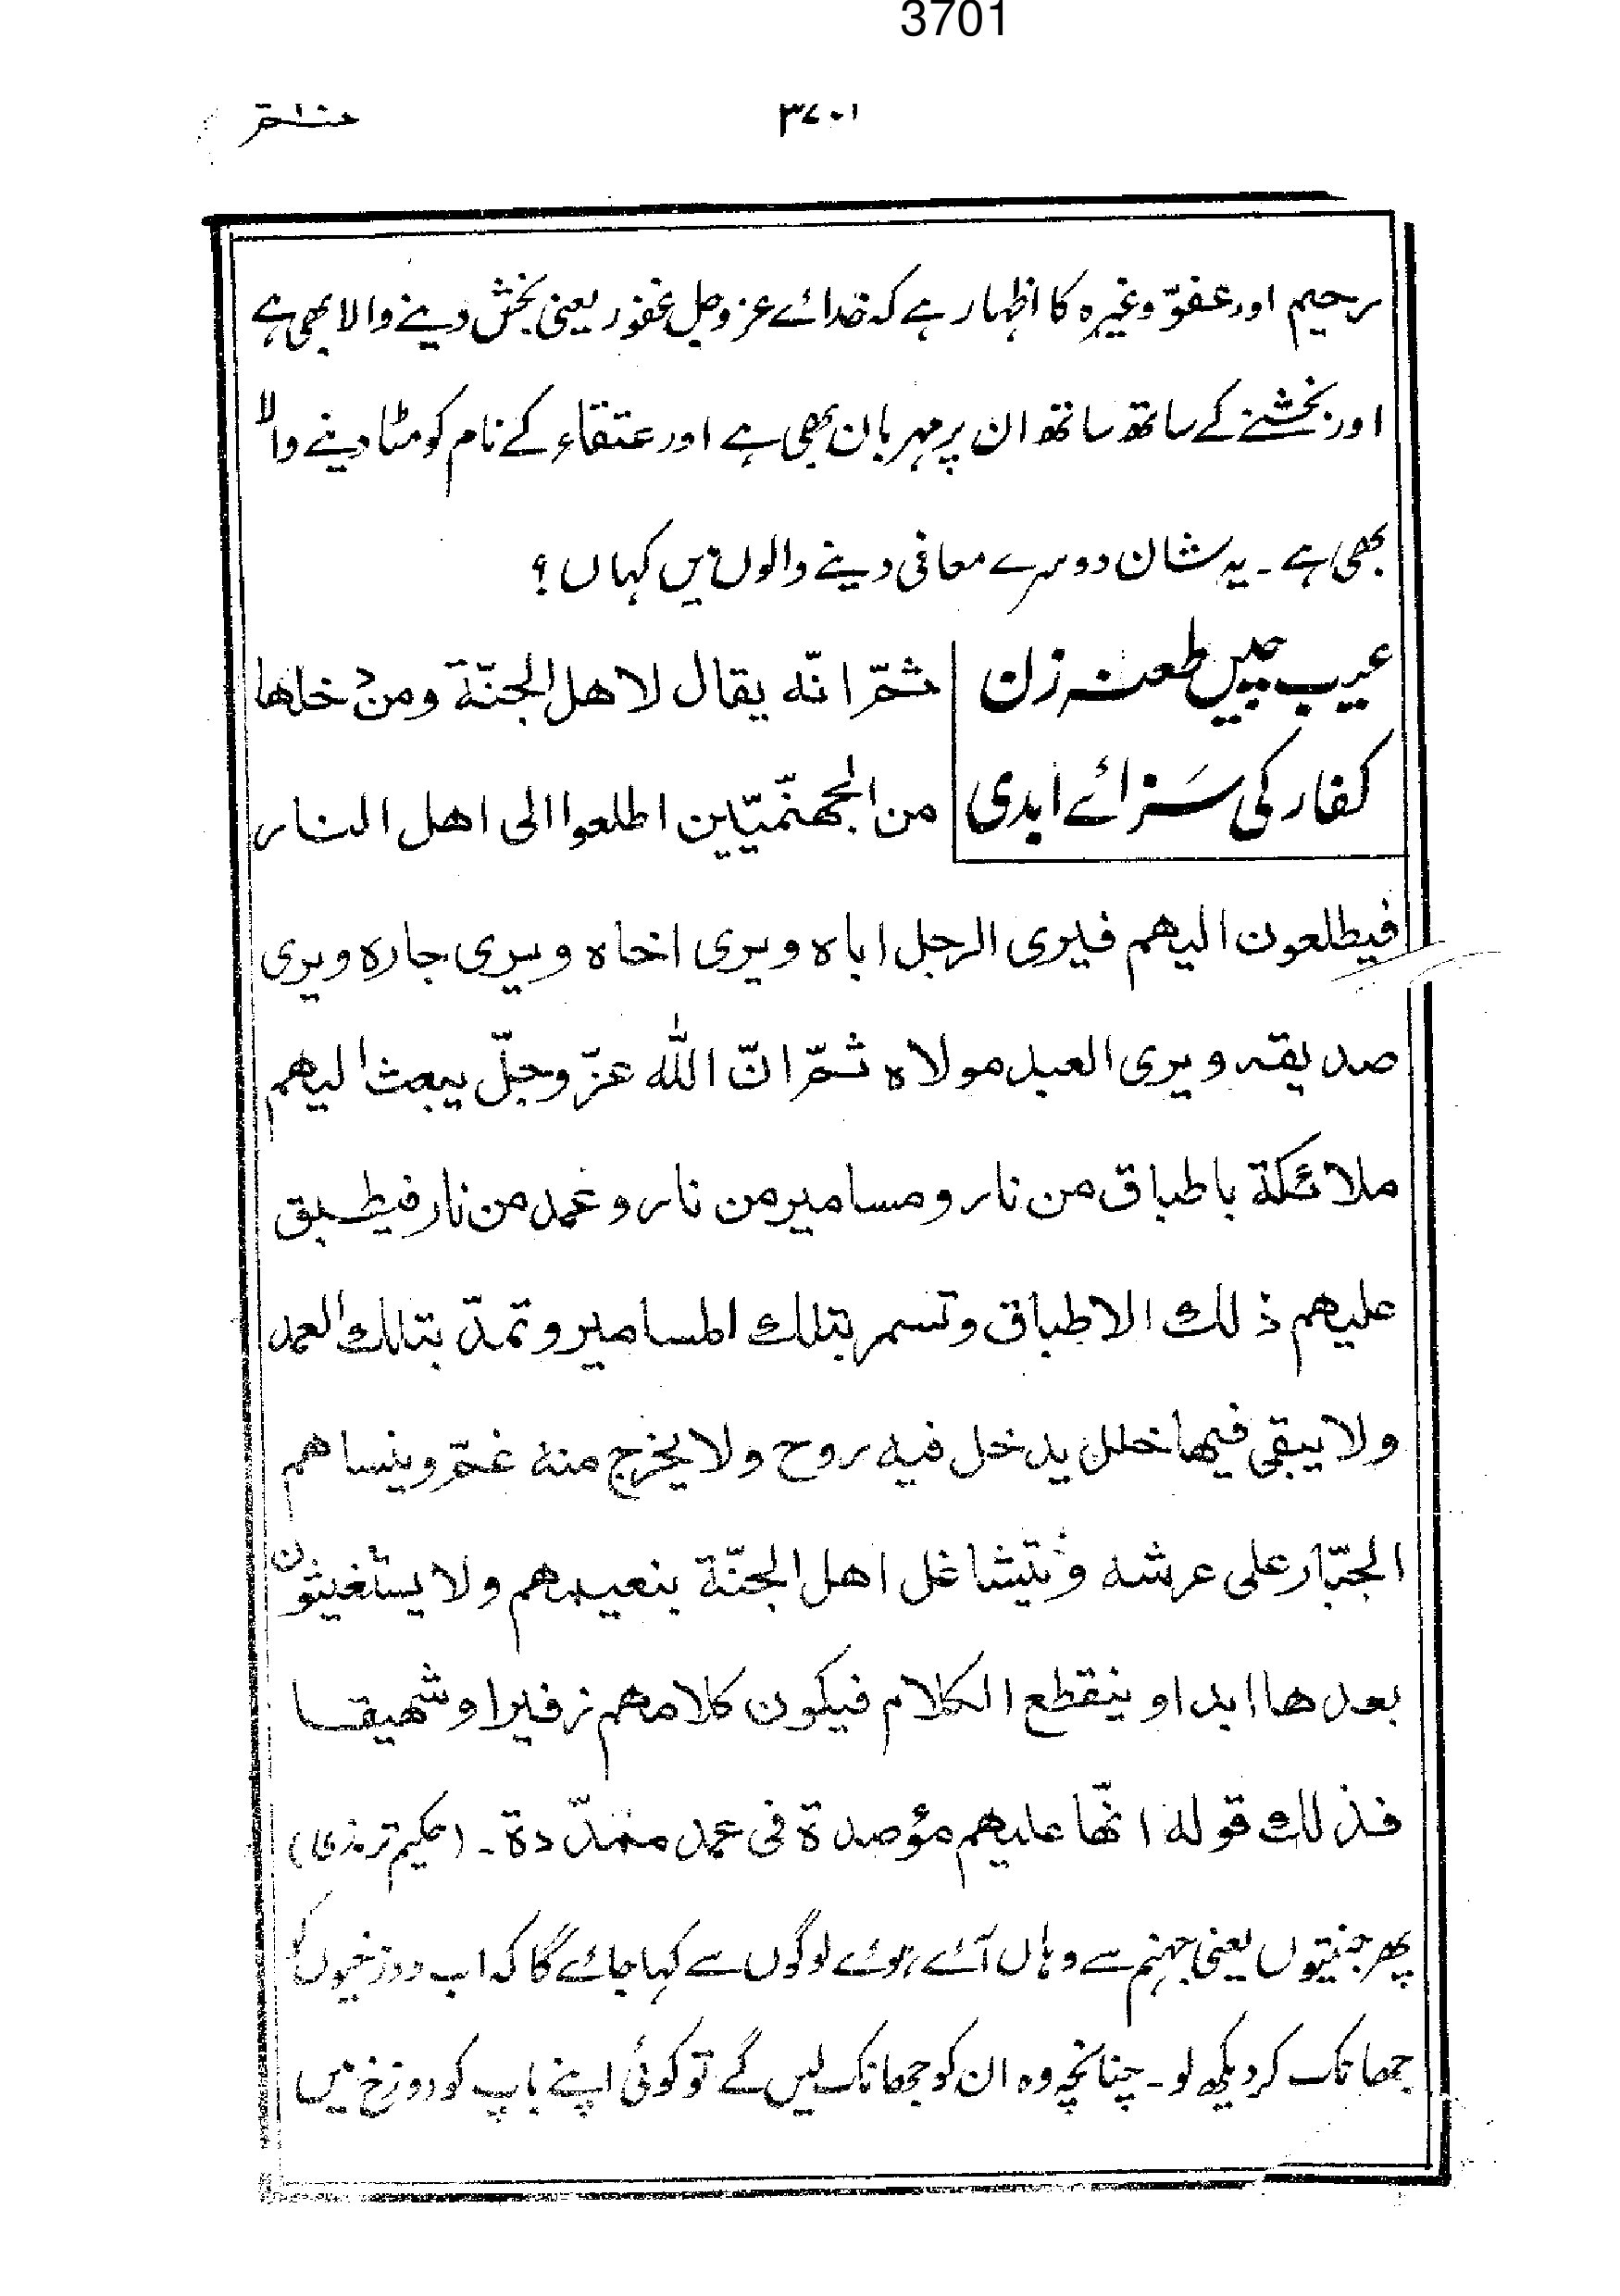 3701
۳۷۰۱
رحیم اور عفوّ وغیرہ کا اظہار ہے کہ خدائے عزوجل غفور یعنی بخش دینے والا بھی ہے
اور بخشنے کے ساتھ ساتھ ان پر مہربان بھی ہے اور عتقاء کے نام کو مٹا دینے والا
بھی ہے۔ یہ شان دوسرے معافی دینے والوں میں کہاں؟
عیب چیں طعنہ زن
کفار کی سزائے ابدی
ثمّ انّه يقال لاهل الجنّة ومن دخلها
من الجهنّميّين اطلعوا الى اهل النار
فيطلعون اليهم فيرى الرجل اباه ويرى اخاه ويرى جاره ويرى
صديقه ويرى العبد مولاه ثمّ انّ الله عزّ وجلّ يبعث اليهم
ملائكة باطباق من نار ومسامير من نار وعمد من نار فيطبق
عليهم ذلك الاطباق وتسمر بتلك المسامير وتمدّ بتلك العمد
ولا يبقى فيها خلل يدخل فيه روح ولا يخرج منه غمّ وينساهم
الجبّار على عرشه وتتشاغل اهل الجنّة بنعيمهم ولا يستغيثون
بعدها ابدا وينقطع الكلام فيكون كلامهم زفيرا وشهيقا
فذلك قوله انّها عليهم مؤصدة فى عمد ممدّدة۔ (حکیم ترمذی)
پھر جنتیوں یعنی جہنم سے وہاں آئے ہوئے لوگوں سے کہا جائے گا کہ اب دوزخیوں کو
جھانک کر دیکھ لو۔ چنانچہ وہ ان کو جھانک لیں گے تو کوئی اپنے باپ کو دوزخ میں